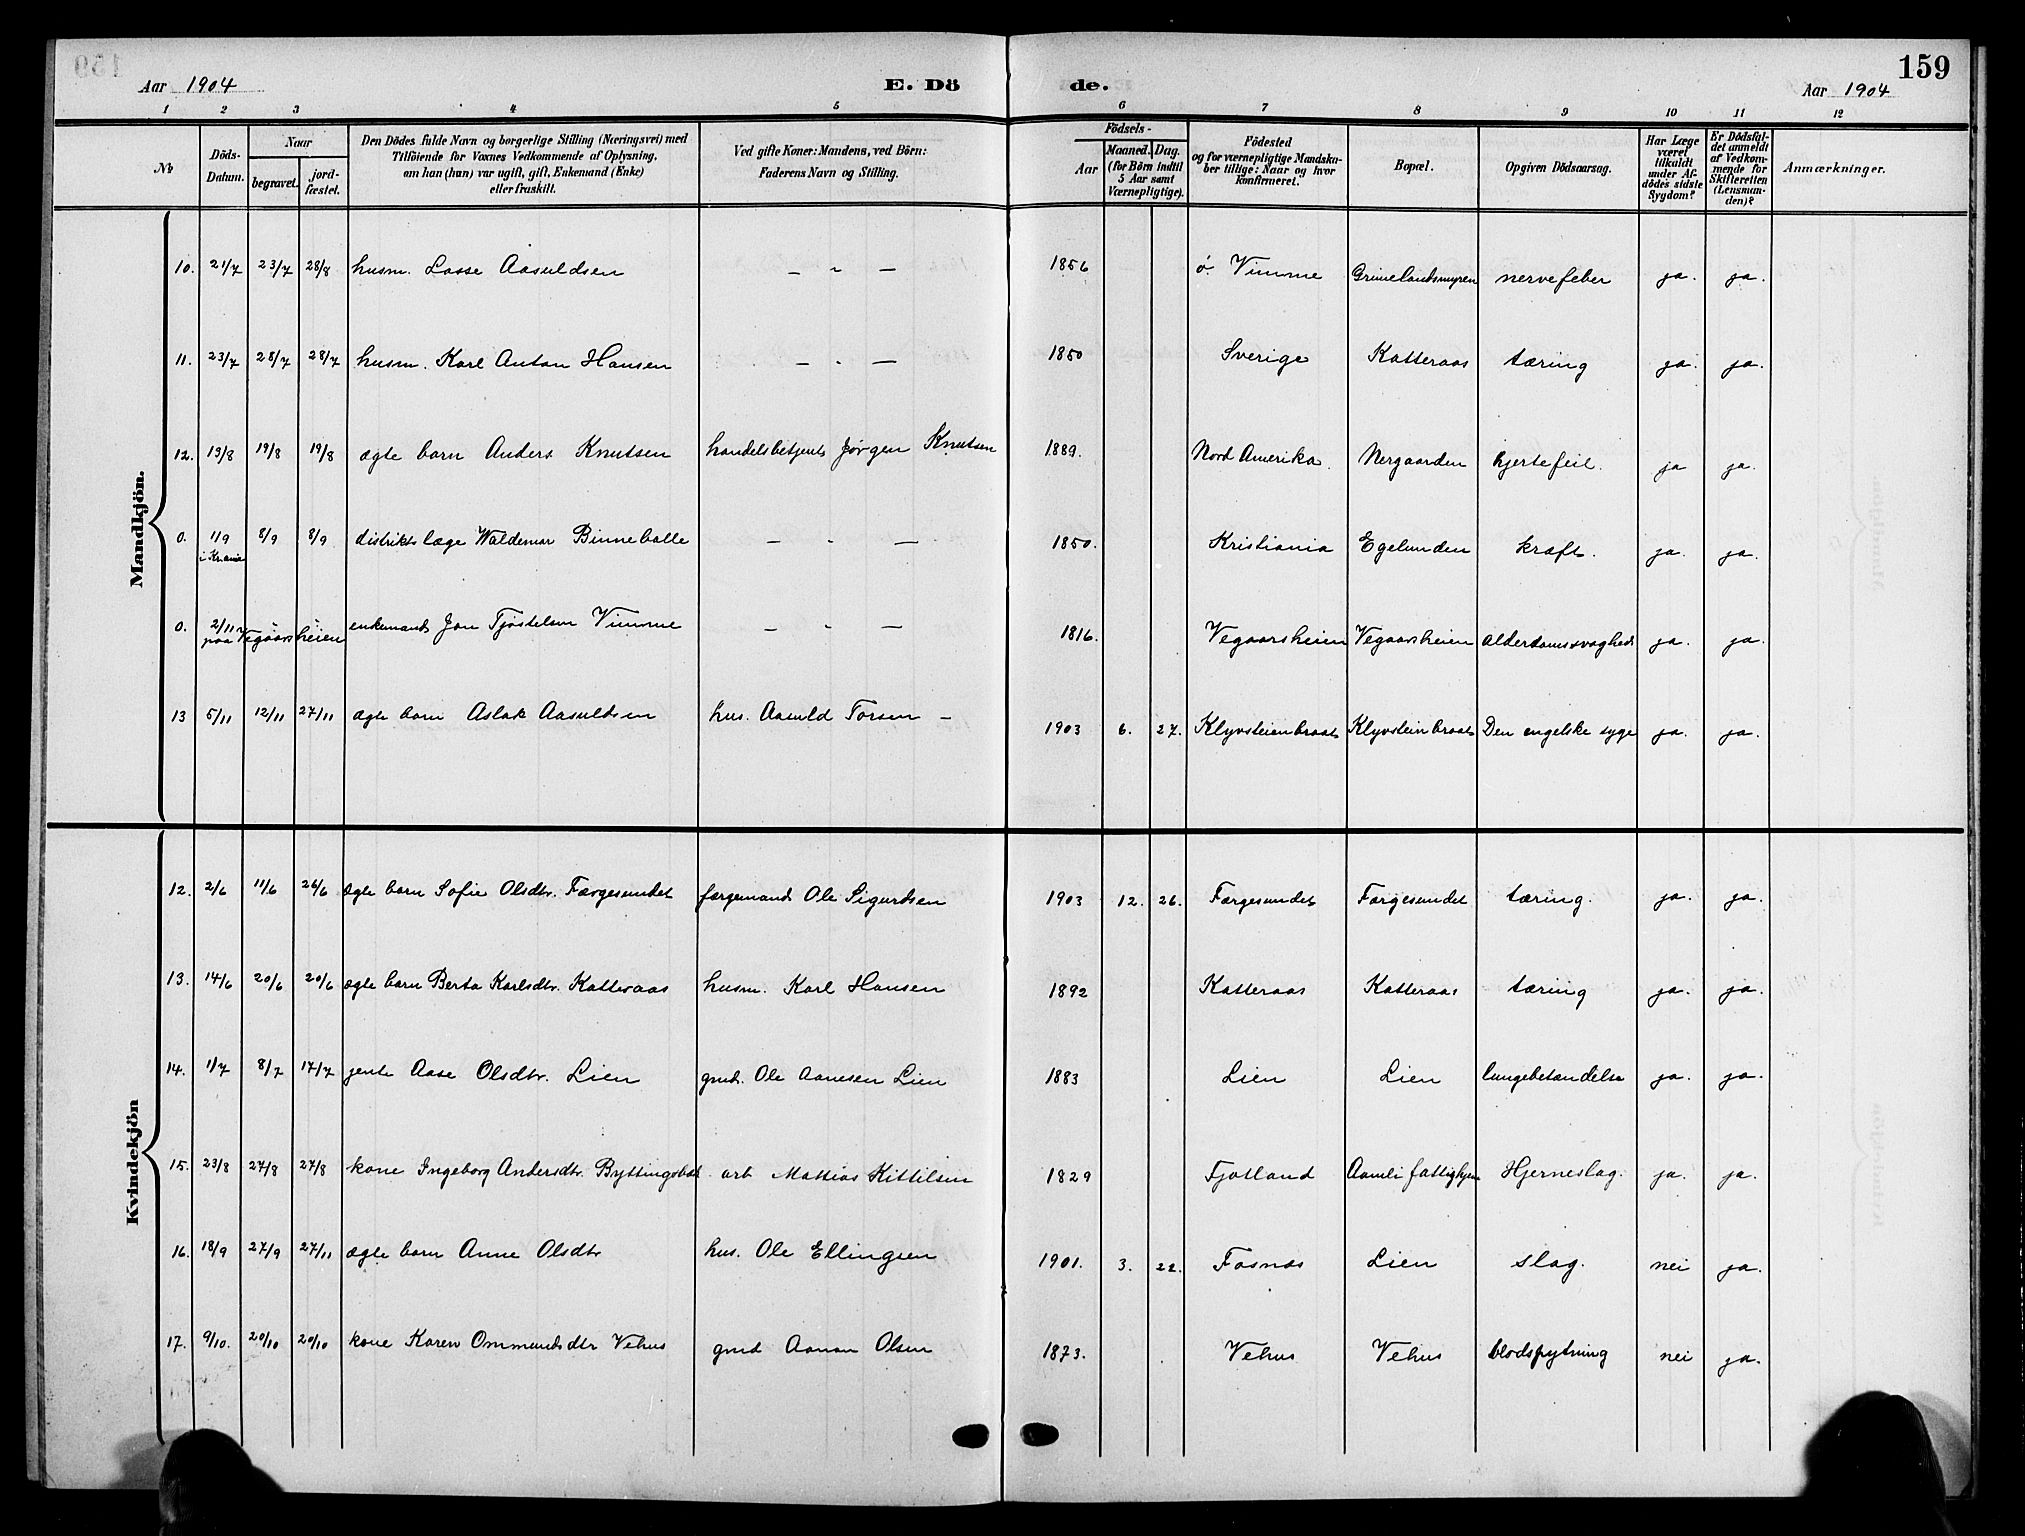 159
Aar 1904 E. Dö de. Aar 1904
1 2 3 4 5 6 7 8 9 10 11 12
No | Döds-Datum. | Naar begravet. | jord-fæstet. | Den Dödes fulde Navn og borgerlige Stilling (Næringsvei) med Tilföiende for Voxnes Vedkommende af Oplysning, om han (hun) var ugift, gift, Enkemand (Enke) eller fraskilt. | Ved gifte Koner: Mandens, ved Börn: Faderens Navn og Stilling. | Födsels- Aar | Maaned. Dag. (for Börn indtil 5 Aar samt Værnepligtige). | Födested og for værnepligtige Mandskaber tillige: Naar og hvor konfirmeret. | Bopæl. | Opgiven Dödsaarsag. | Har Læge været tilkaldt under Afdödes sidste Sygdom? | Er Dödsfaldet anmeldt af Vedkommende for Skifteretten (Lensmanden)? | Anmærkninger.
Mandkjön.
10. 21/7 23/7 28/8 husm. Lasse Aasuldsen – " – 1856 ö. Vimme Grimelandsmyren nervefeber ja. ja.
11. 23/7 28/7 28/7 husm. Karl Anton Hansen – " – 1850 Sverige Katteraas tæring ja. ja.
12. 13/8 19/8 19/8 ægte barn Anders Knutsen handelsbetjent Jørgen Knutsen 1889. Nord Amerika. Nergaarden hjertefeil. ja ja.
0. 1/9 i Krania 8/9 8/9 distriktslæge Waldemar Binneballe – " – 1850. Kristiania Egelunden kræft. ja. ja.
0. 2/11 paa Vegaarsheien " " enkemand Jon Tjøstelsen Vimme – " – 1816. Vegaarsheien Vegaarsheien Alderdomssvaghed ja. ja.
13 5/11 12/11 27/11 ægte barn Aslak Aasuldsen hus. Aasuld Torsen – 1903 6. 27. Klyvsteinbraat Klyvsteinbraat Den engelske syge ja. ja.
Kvindekjön
12. 2/6 11/6 26/6 ægte barn Sofie Olsdtr. Færgesundet færgemand Ole Sigurdsen 1903 12. 26. Færgesundet Færgesundet tæring. ja. ja.
13. 14/6 20/6 20/6 ægte barn Berta Karlsdtr. Katteraas husm. Karl Hansen 1892 Katteraas Katteraas tæring ja. ja.
14. 1/7 8/7 17/7 jente Aase Olsdtr. Lien gmd. Ole Aanesen Lien 1883 Lien Lien lungebetændelse ja. ja.
15. 23/8 27/8 27/8 kone Ingeborg Andersdtr. arb. Mattias Kittilsen 1829 Fjotland Aamli fattighjem Hjerneslag. ja. ja.
16. 18/9 27/9 27/11 ægte barn Anne Olsdtr hus. Ole Ellingsen 1901. 3. 22. Fosnæs Lien slag. nei ja.
17. 9/10. 20/10 20/10 kone Karen Ommundsdtr Vehus gmd Aanon Olsen 1873. Vehus Vehus blodspytning nei ja.